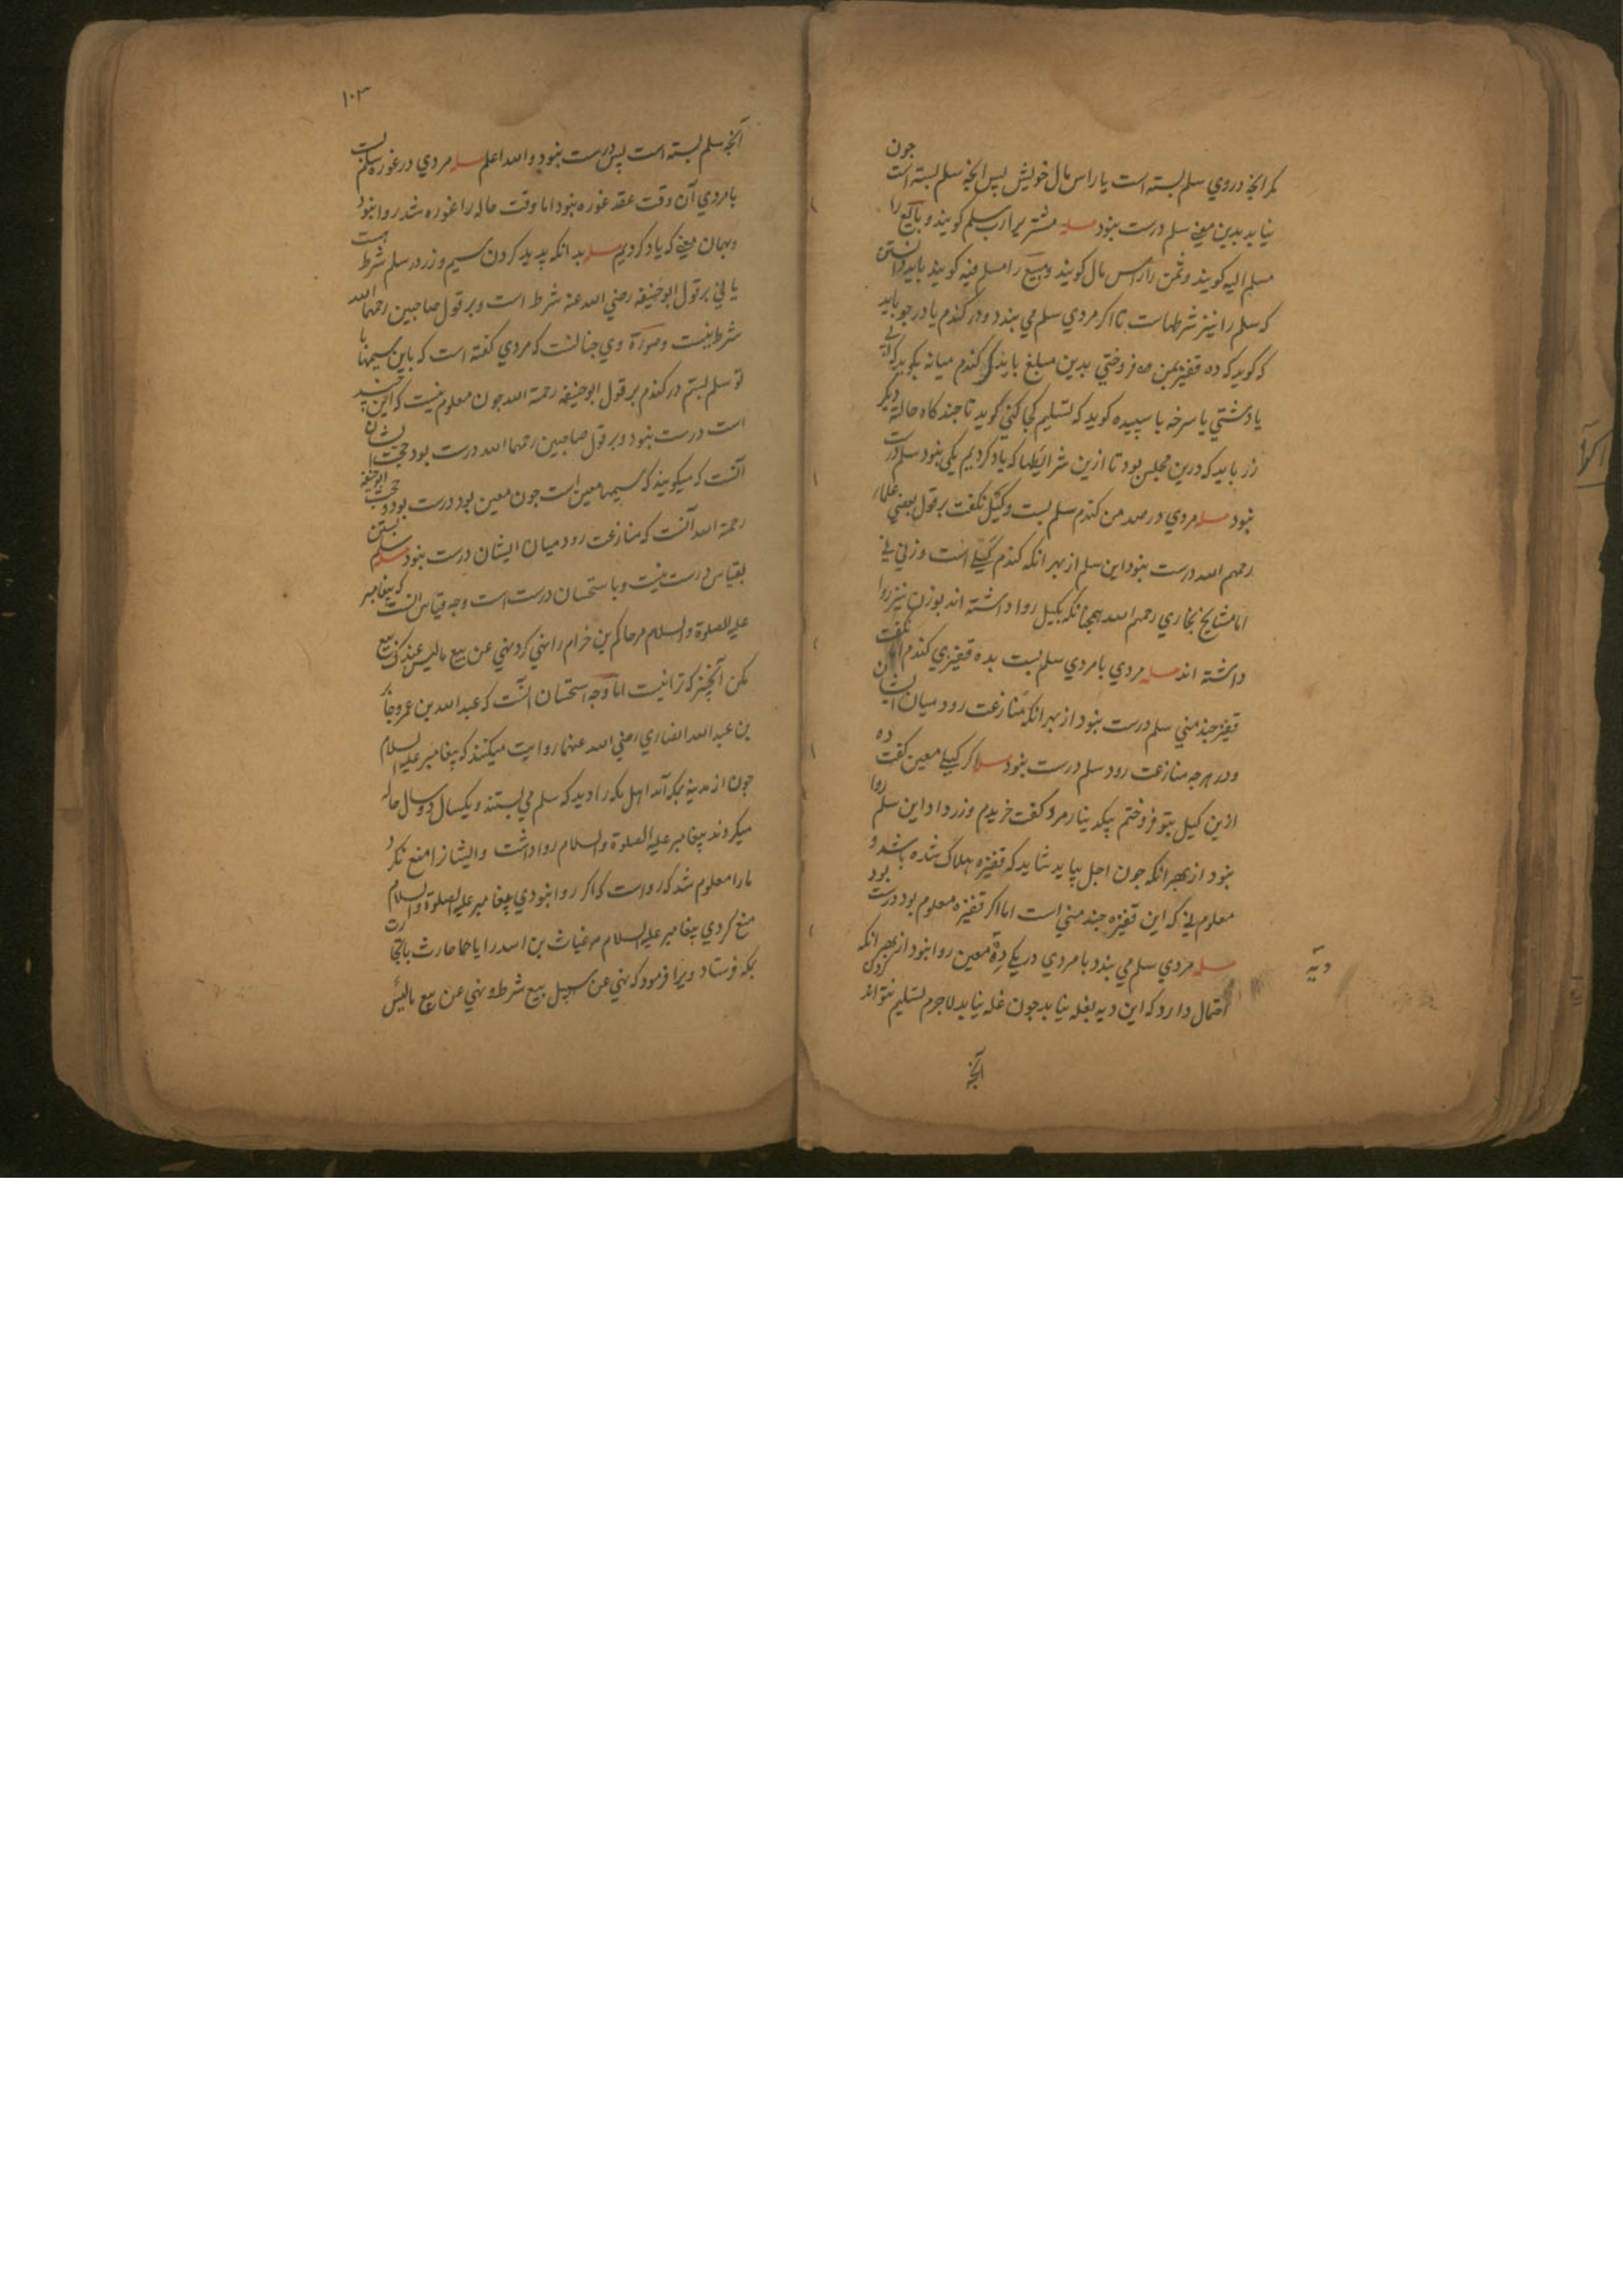 مکر انجه در وي سلم بسته است يا راس مال خويش پس انجه سلم بسته است جون
نيايد بدين معني سلم درست نبود مسله مشتريرا رب سلم کويند و بايع را
مسلم اليه کويند و ثمن را راس مال کويند و مبيع را مسلم فيه کويند بايد دانستن
که سلم را نيز شرطهاست تا اکر مردي سلم مي بندد در کندم يا در جو بايد
که کويد که ده قفيز بمن فروختي بدين مبلغ بايد که کندم ميانه بکويد که
يا دشتي يا سرخه يا سپيده کويد که تسليم کجا کني کويد تا جند کاه حاله ديکر
زر بايد که درين مجلس بود تا ازين شرايطها که ياد کرديم يکي نبود سلم درست
نبود مسله مردي در صد من کندم سلم بست و کيل نکفت بر قول بعضي علماء
رحمهم الله درست نبود اين سلم از بهر انکه کندم کيلي است وزني ني
اما مشايخ بخاري رحمهم الله همجنانکه بکيل روا داشته اند بوزن نيز روا
داشته اند مسله مردي با مردي سلم بست بده قفيزي کندم اما نکفت
قفيز جند مني سلم درست نبود از بهر انکه منازعت رود ميان ايشان
و در هرجه منازعت رود سلم درست نبود مسله اکر کيلي معين کفت ده
ازين کيل بتو فروختم بيکدينار مرد کفت خريدم و زر داد اين سلم روا
نبود از بهر انکه جون اجل بيايد شايد که قفيزه هلاک شده باشد و
معلوم ني که اين قفيزه جند مني است اما اکر قفيزه معلوم بود درست بود
مسله مردي سلم مي بندد با مردي در يکي دۀ معين روا نبود از بهر انکه
احتمال دارد که اين ديه بغله نيايد جون غله نيايد لاجرم تسليم نتواند کردن
ديه
آنجه
۱۰۳
آنجه سلم بسته است پس درست نبود والله اعلم مسله مردي در غوره سلم بست
با مردي آن وقت عقد غوره نبود اما وقت حاله را غوره شد روا نبود
و بهمان معني که ياد کرديم مسله بدانکه پديد کردن سيم و زر در سلم شرط هست
يا ني بر قول ابو حنيفه رضي الله عنه شرط است و بر قول صاحبين رحمهما الله
شرط نيست و صورة وي جنانست که مردي کفته است که باين سيمها با
تو سلم بستم در کندم بر قول ابو حنيفه رحمة الله جون معلوم نيست که اين چند
است درست نبود و بر قول صاحبين رحمهما الله درست بود حجت ايشان
آنست که ميکويند که سيمها معين است جون معين بود درست بود و حجت ابو حنيفه
رحمة الله آنست که منازعت رود ميان ايشان درست نبود مسله سلم بستن
بقياس درست نيست و باستحسان درست است وجه قياس آنست که پيغامبر
عليه الصلوة والسلام مر حاکم بن خزام را نهي کرد نهي عن بيع ما ليس عندک بيع
مکن آنچيز که ترا نيست اما وجه استحسان آنست که عبد الله بن عمر و جابر
بن عبد الله انصاري رضي الله عنهما روايت ميکنند که پيغامبر عليه السلام
جون از مدينه بمکه آمد اهل مکه را ديد که سلم مي بستند و يکسال و دو سال حاله
ميکردند پيغامبر عليه الصلوة والسلام روا داشت و ايشانرا منع نکرد
مارا معلوم شد که رواست که اکر روا نبودي پيغامبر عليه الصلوة والسلام
منع کردي پيغامبر عليه السلام مر غياث بن اسد را
بمکه فرستاد ويرا فرمود که نهي عن سبيل بيع شرط و نهي عن بيع ما ليس